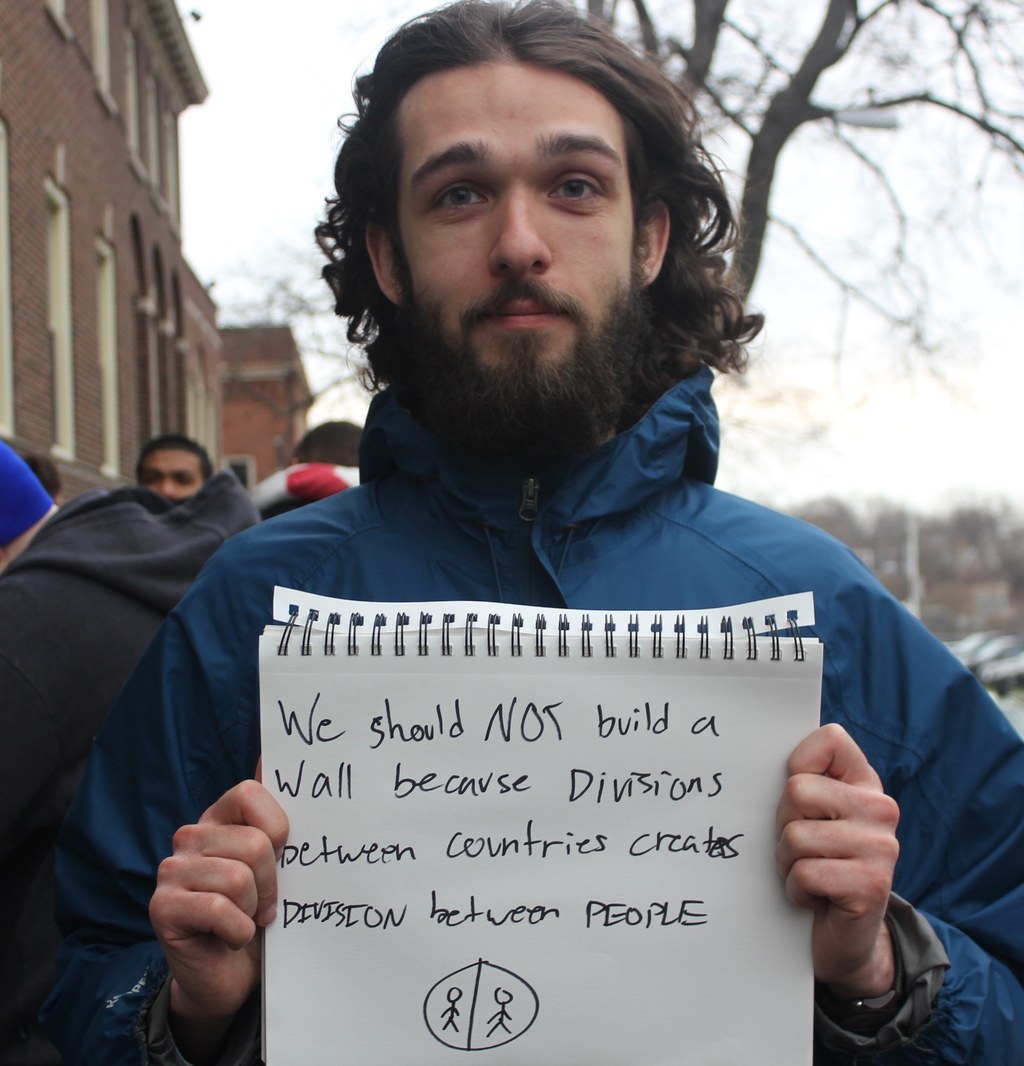 We should NOT build a
Wall because Divisions
between countries creates
DIVISION between PEOPLE